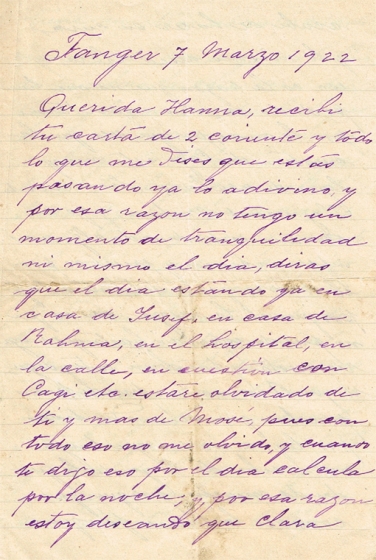 Tanger 7 Marzo 1922
Querida Hanna, recibi
tu carta de 2 corriente y todo
lo que me dises que estás
pasando ya lo adivino, y
por esa razon no tengo un
momento de tranquilidad
ni mismo el dia, diras
que el dia estando ya en
casa de Yusef, en casa de
Rahma, en el hospital, en
la calle, en cuestion con
Cagi etc. estare olvidado de
ti y mas de Mosé, pues con
todo eso no me olvido, y cuando
te digo eso por el dia calcula
por la noche, y por esa razon
estoy deseando que clara